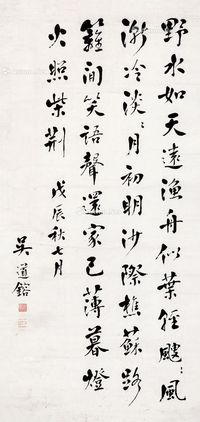 野水如天遠漁舟似葉輕颼〻風
漸冷淡〻月初明沙際樵蘇路
籬間笑語聲還家已薄暮燈
火照柴荆 戊辰秋七月
吳道鎔